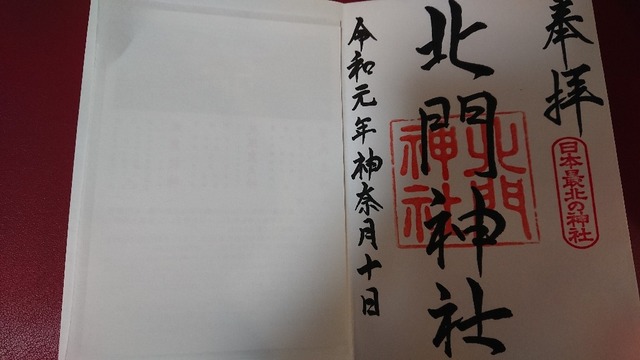 奉拝
日本最北の神社
北門神社
北門
神社
令和元年神奈月十日